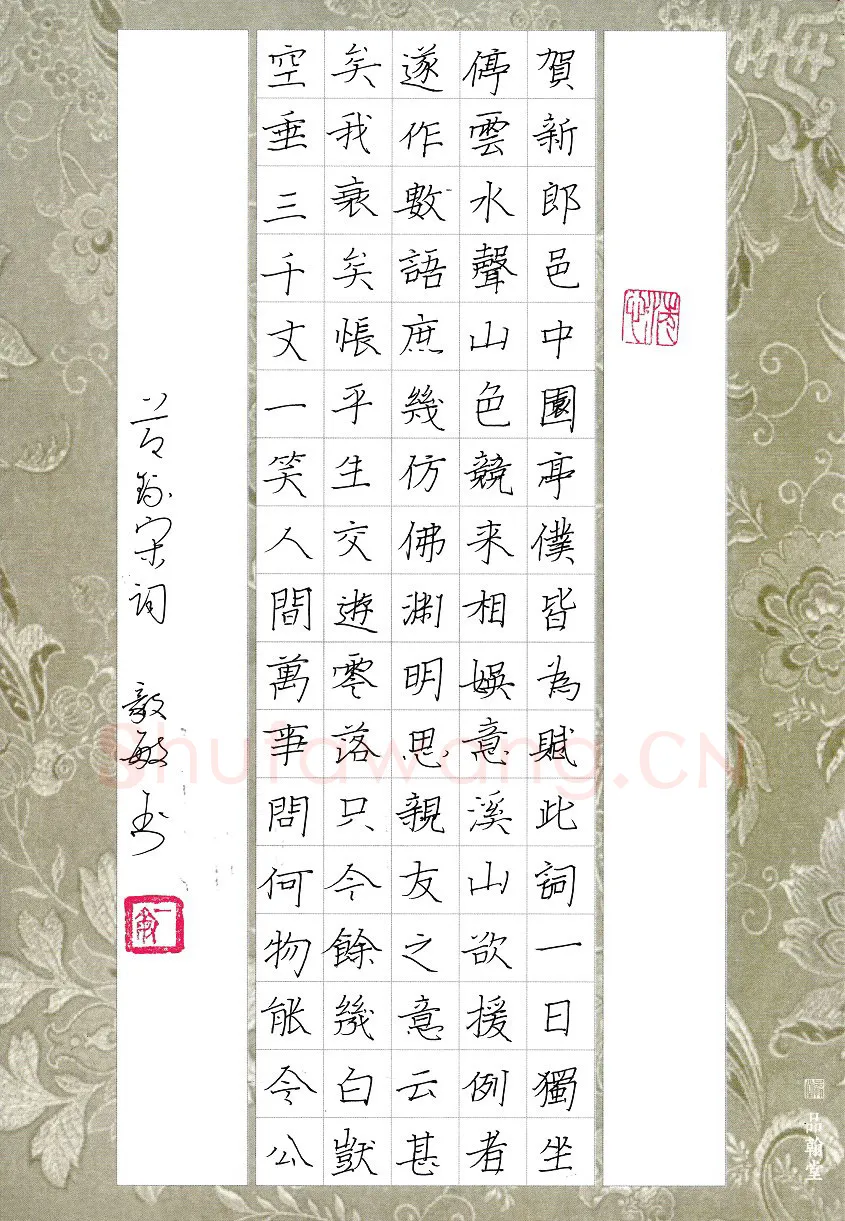 賀新郎邑中園亭僕皆為賦此詞一日獨坐
停雲水聲山色競来相娛意溪山欲援例者
遂作數語庶幾仿佛渊明思親友之意云甚
矣我衰矣悵平生交遊零落只今餘幾白獣
空垂三千丈一笑人間萬事問何物能令公
节錄宋词 毅敏书
品翰堂
Shufawang.CN